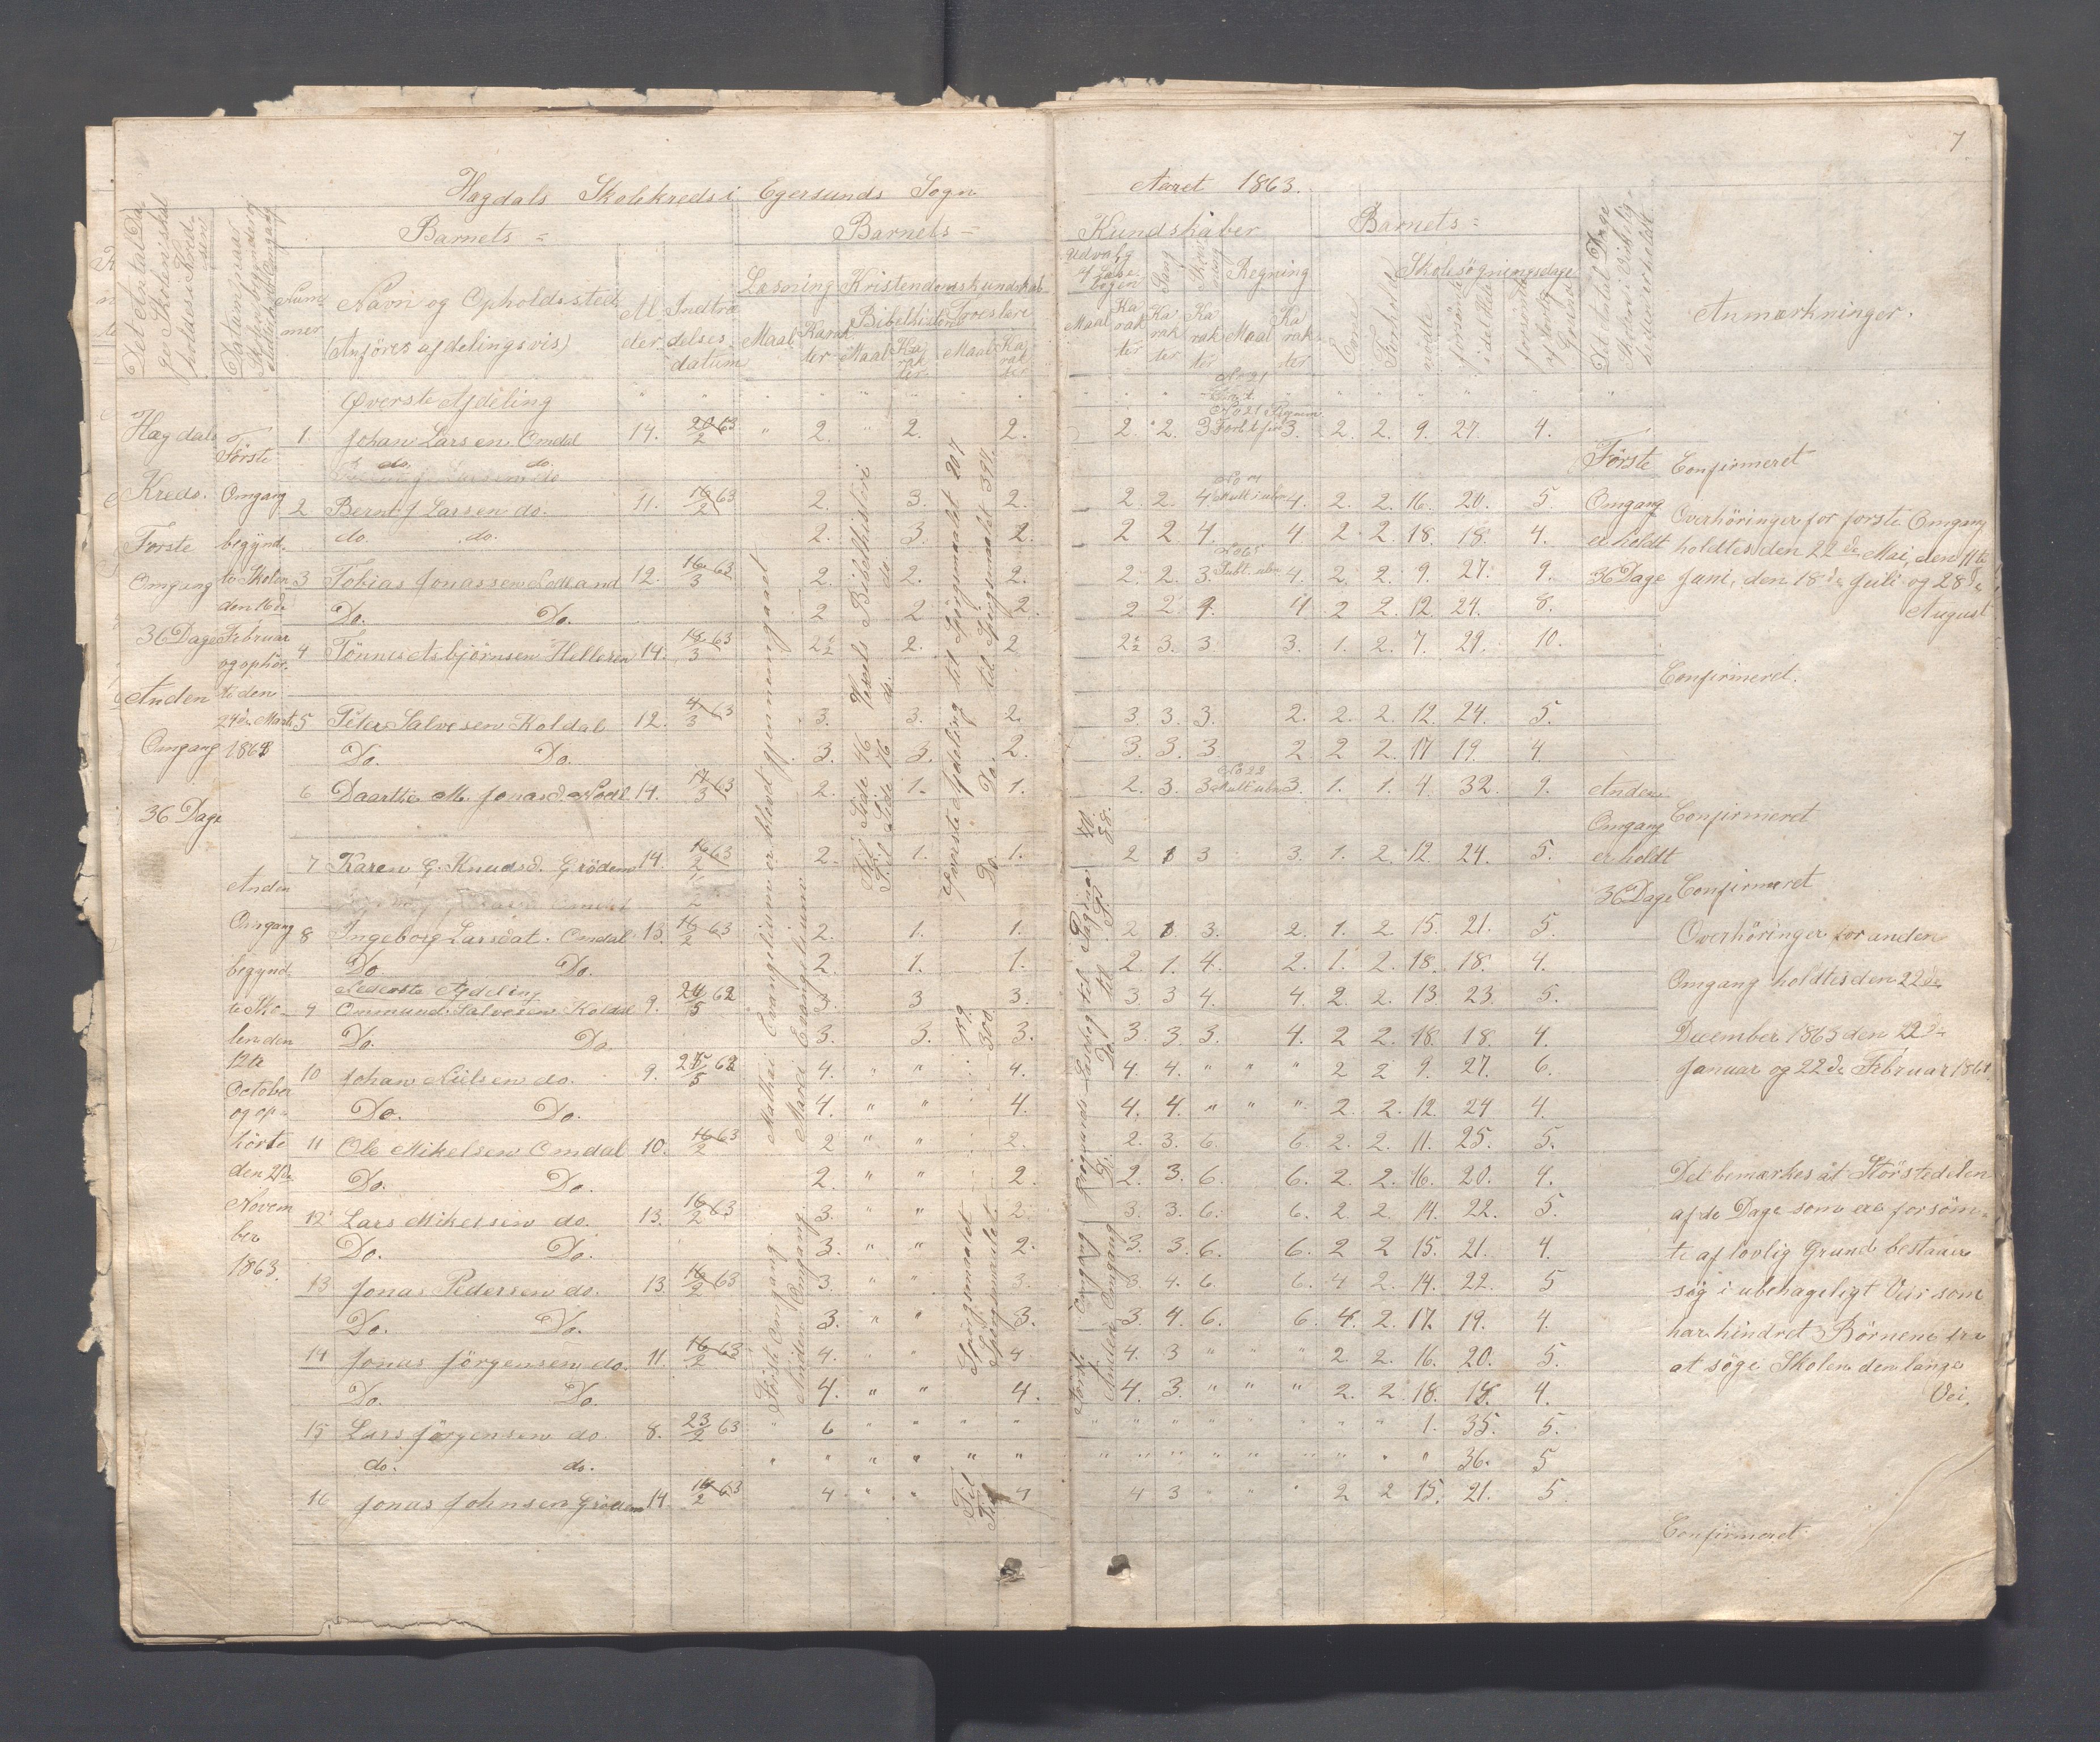 7
Hægdals Skolekreds i Egersunds Sogn Aaret 1863.
Det Antal Da
ge Skolen skal
holdes i Kred
sen
Datum naar
Skolen begynder og
slutter hver Omgang
Barnets =
Num
mer
Navn og Opholdssted
(Anføres afdelingsvis)
Al
der
Indtræ
delses
datum
Barnets =
Læsning
Maal
Karak
ter
Kristendomskundskab
Bibelhistorie
Maal
Ka
rak
ter
Troeslære
Maal
Ka
rak
ter
Kundskaber
Udvalg
af Læse
bogen
Maal
Ka
rak
ter
Sang
Ka
rak
ter
Skriv
ning
Ka
rak
ter
Regning
Maal
Ka
rak
ter
Barnets =
Evne
Forhold
Skolesøgningsdage
mødte
forsømte
i det Hele
forsømte
af lovlig
Grund
Det Antal Dage
Skolen i Virkelig-
heden er holdt
Anmærkninger.
Øverste Afdeling
1. Johan Larsen Omdal 14. 20/2 63 " 2. " 2. 2. 2. 2. 3 3. 2. 2. 9. 27. 4.
do. do.
2 Bernt J Larsen do. 11. 16/2 63 2. 3. 2. 2. 2. 4. 4. 2. 2. 16. 20. 5
do. do. 2. 3. 2. 2 2 4. 4 2 2. 18. 18. 4.
3 Tobias Jonassen 12. 16/3 63 2. 2. 2. 2. 2. 3. 4. 2. 2. 9. 27. 9.
Do. Do. 2 2 2. 2 2 4. 4 2 2. 12. 24. 8.
4 Tønnes Asbjørnsen Helleren 14. 18/3 63 2½ 2. 2 2½ 3. 3. 3. 1. 2. 7. 29. 10.
5 Peder Salvesen Koldal 12. 4/3 63 3. 3. 2. 3. 3. 3. 2. 2. 2. 12. 24. 5.
Do. Do. 3. 3. 2. 3. 3. 3. 2 2 2. 17 19. 4.
6 Daarthe M. Jonasd. 14. 17/3 63 2. 1. 1. 2. 3. 3 3. 1. 1. 4. 32. 9.
7 Karen G. Knudsd. Grødem 14. 16/2 63 2. 1. 1. 2 1 3 3. 1. 2. 12. 24. 5.
8 Ingeborg Larsdat. Omdal 13. 16/2 63 2. 1. 1. 2 1 3. 2. 1. 2 15. 21. 5.
Do. Do. 2. 1. 1. 2. 1. 4. 2. 1. 2. 18. 18. 4.
Nederste Afdeling
9 Ommund Salvesen Koldal 9. 24/5 62 3. 3 3. 3. 3 4. 4. 2. 2. 13. 23. 5.
Do. Do. 3. 3. 3. 3. 3. 3 4. 2 2. 18. 18. 4.
10 Johan Nielsen do. 9. 24/5 62 4. " " 4. 4. 4. " " " 2 2 9. 27. 6.
Do. Do. 4. " " 4. 4. 4. " " " 2. 2. 12. 24 4.
11 Ole Mikelsen Omdal 10. 16/2 63 2 " " 2. 2. 3. 6. 6. 2. 2. 11. 25. 5.
Do. Do. 2. " " 2. 2. 3. 6. 6. 2. 2. 16. 20. 4.
12 Lars Mikelsen do. 13. 16/2 63 3. " " 2 3. 3. 6. 6. 2. 2. 14. 22. 5.
Do. Do. 3. " " 2. 3. 3. 6. 6. 2 2 15. 21. 4.
13 Jonas Pedersen do. 13. 16/2 63 3. " " 3. 3. 4. 6. 6. 4 2. 14. 22. 5
Do. Do. 3. " " 3. 3. 4. 6. 6. 4. 2. 17. 19. 4.
14 Jonas Jørgensen do. 11. 16/2 63 4. " " 4 4. 3 " " " 2. 2. 16. 20. 5.
Do. Do. 4. " " 4. 4. 3. " " " 2. 2. 18. 18. 4.
15 Lars Jørgensen do. 8. 23/2 63 " 6 " " " " " " " " " " " " 1. 35. 5.
do. do. " " " " " " " " " " " " " " " 36. 5
16 Jonas Johnsen Grødem 14. 16/2 63 4 " " 4 4 3 " " " 2 2 15. 21. 5
Hægdals
Kreds.
Første
Omgang
36 Dage
Anden
Omgang
36 Dage
Første
Omgang
begynd-
te Skolen
den 16de
Februar
og ophør-
te den
24de Marts
1863
Anden
Omgang
begynd-
te Sko-
len den
12te
October
og op-
hørte
den 21de
Novem
ber
1863.
Første Omgang Mathæi Evangelium er blevet gjennemgaaet
Anden Omgang Marci Evangelium
Til Side 46 Vogts Bibelhistori
Til Side 76 do
Til Spørgsmaalet 159. Øverste Afdeling til Spørgsmaalet 207
Til Spørgsmaalet 300 Do. til Spørgsmaalet 391.
Første Omgang Læsebog til Pagina 40.
Anden Omgang D. Do til P. 88.
Første
Omgang
er holdt
36 Dage
Anden
Omgang
er holdt
36 Dage
Confirmeret
Overhøringer for første Omgang
holdtes den 22de Mai, den 11te
Juni, den 18de Juli og 28de
August
Confirmeret.
Confirmeret
Confirmeret
Overhøringer for anden
Omgang holdtes den 22de
December 1863 den 22de
Januar og 22de Februar 1864.
Det bemærkes at Størstedelen
af de Dage som ere forsøm-
te af lovlig Grund bestaaer
sig i ubehageligt Veir som
har hindret Børnene fra
at søge Skolen den lange
Vei.
Confirmeret